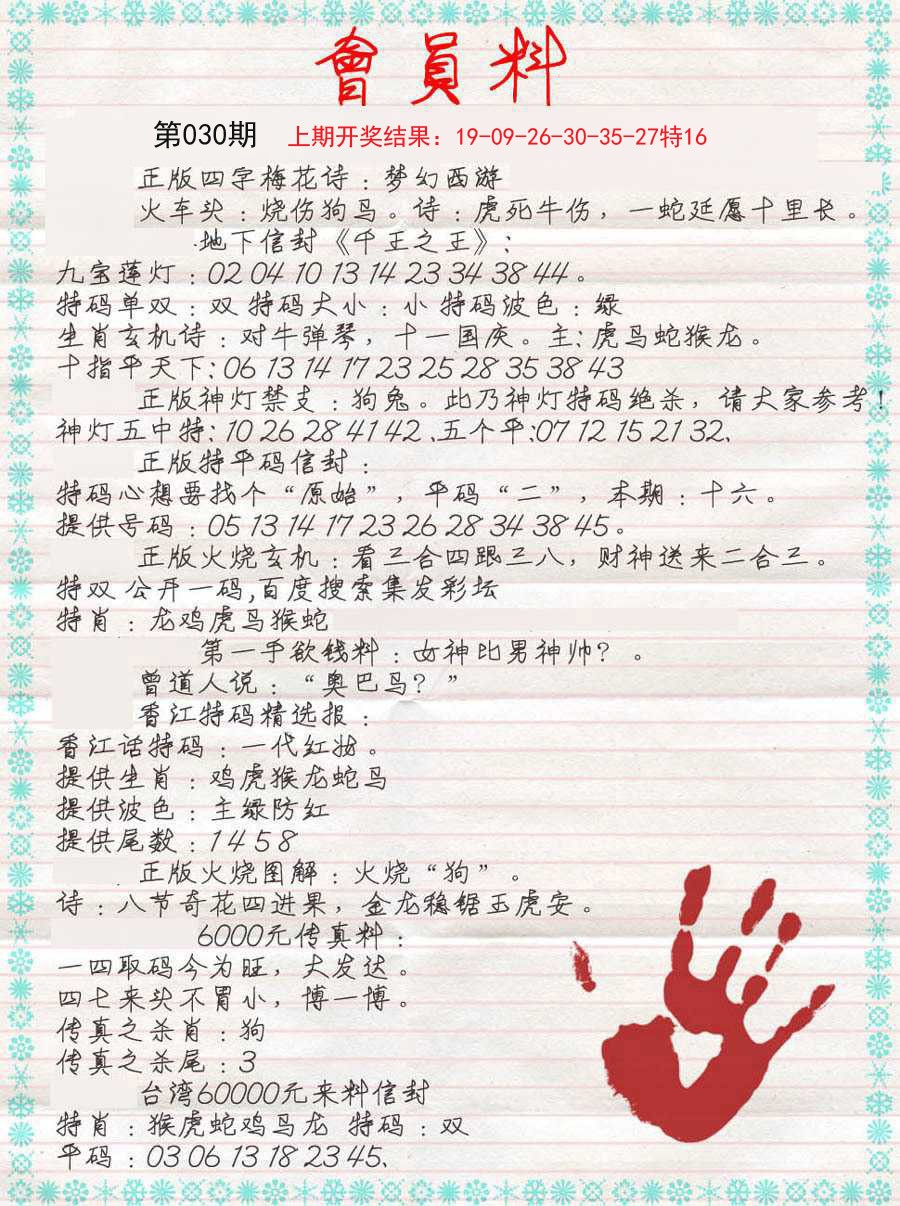 會員料
第030期 上期开奖结果：19-09-26-30-35-27特16
正版四字梅花诗：梦幻西游
火车头：烧伤狗鸟。诗：虎死牛伤，一蛇延愿十里长。
.地下信封《千王之王》；
九宝莲灯：02 04 10 13 14 23 34 38 44。
特码单双：双 特码大小：小 特码波色：绿
生肖玄机诗：对牛弹琴，十一国庆。主：虎马蛇猴龙。
十指平天下：06 13 14 17 23 25 28 35 38 43
正版神灯禁支：狗兔。此乃神灯特码绝杀，请大家参考！
神灯五中特：10 26 28 41 42、五个平：07 12 15 21 32、
正版特平码信封：
特码心想要找个“原始”，平码“二”，本期：十六。
提供号码：05 13 14 17 23 26 28 34 38 45。
正版火烧玄机：看三合四跟三八，财神送来二合三。
特双 公开一码,百度搜索集发彩坛
特肖：龙鸡虎马猴蛇
第一手欲钱料：女神比男神帅？。
曾道人说：“奥巴马？”
香江特码精选报：
香江话特码：一代红妝。
提供生肖：鸡虎猴龙蛇马
提供波色：主绿防红
提供尾数：1 4 5 8
正版火烧图解：火烧“狗”。
诗：八节奇花四进果，金龙稳锯玉虎安。
6000元传真料：
一四取码今为旺，大发达。
四七来头不胃小，博一博。
传真之杀肖：狗
传真之杀尾：3
台湾60000元来料信封
特肖：猴虎蛇鸡马龙 特码：双
平码：03 06 13 18 23 45、